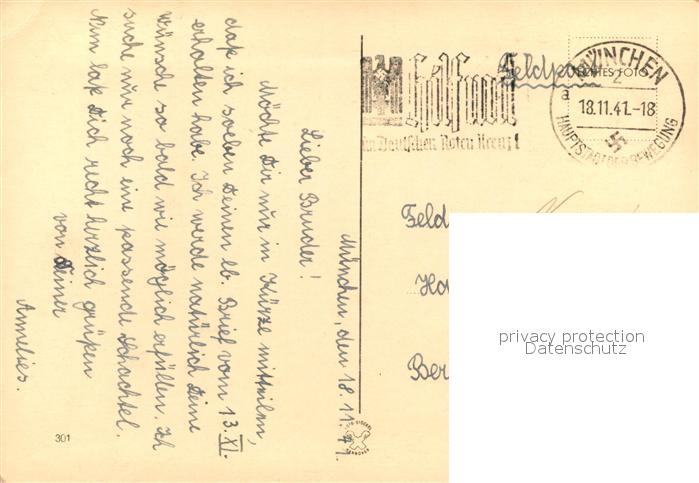 München, den 18.11.41.
Lieber Bruder!
Möchte Dir nur in Kürze mitteilen,
daß ich soeben Deinen lb. Brief vom 13. XI.
erhalten habe. Ich werde natürlich Deine
Wünsche so bald wie möglich erfüllen. Ich
suche nur noch eine passende Schachtel.
Nun laß Dich recht herzlich grüßen
von Deiner
Annelies.
301
Hilf mit
im Deutschen Roten Kreuz!
Feldpost
ECHTES FOTO
MÜNCHEN
2
a
18.11.41.-18
HAUPTSTADT DER BEWEGUNG
Feld
Ha
Ber
privacy protection
Datenschutz